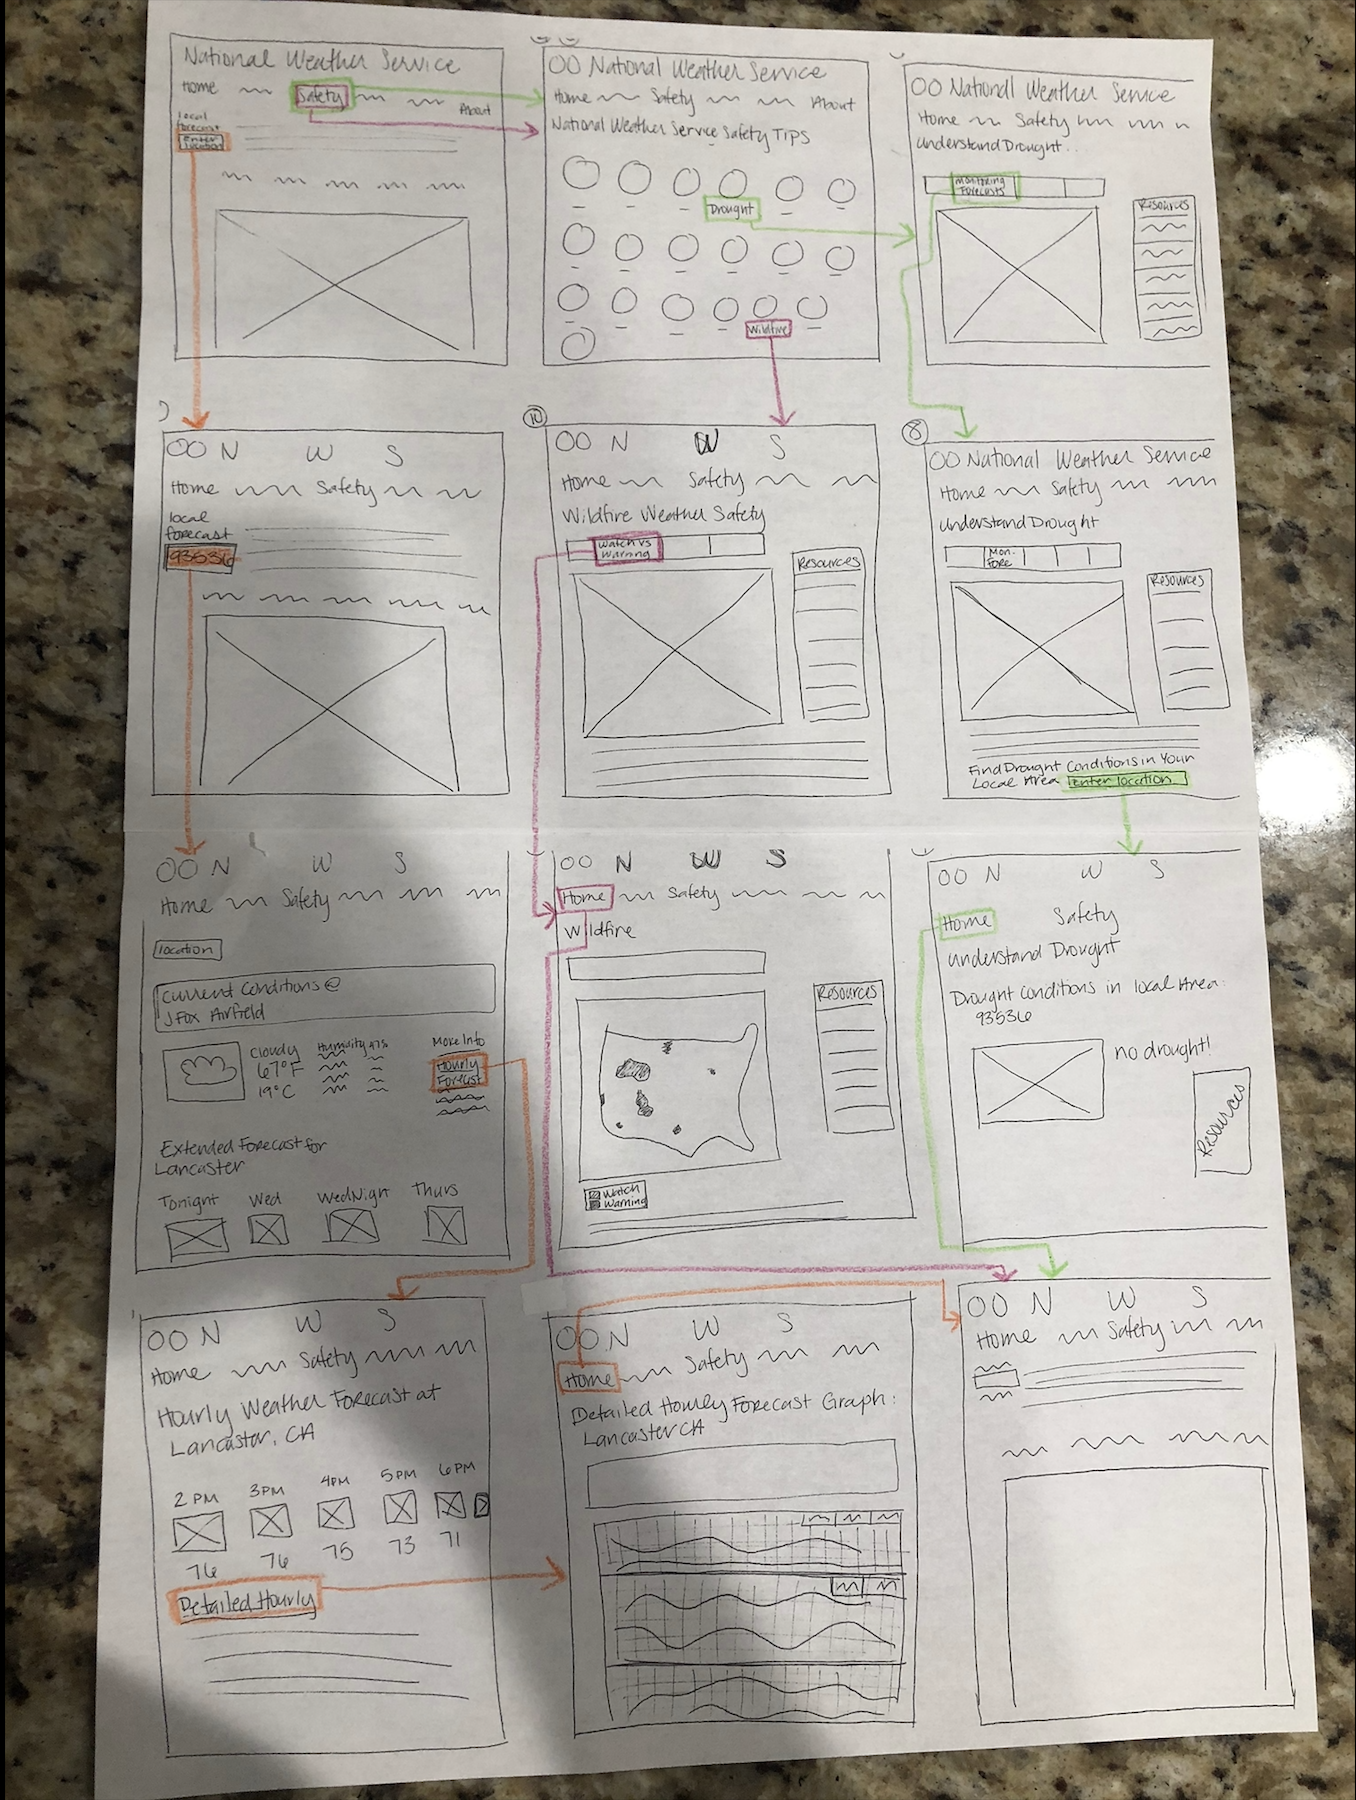 National Weather Service
Home Safety About
local
forecast
Enter
location
OO National Weather Service
Home Safety About
National Weather Service Safety Tips
Drought
Wildfire
OO National Weather Service
Home Safety
Understand Drought..
Monitoring
Forecasts
Resources
OO N W S
Home Safety
local
forecast
93536
10
OO N W S
Home Safety
Wildfire Weather Safety
Watch vs
Warning
Resources
8
OO National Weather Service
Home Safety
Understand Drought
Mon.
Fore
Resources
Find Drought Conditions in Your
Local Area Enter location
OO N W S
Home Safety
location
Current Conditions @
J Fox Airfield
Cloudy
67°F
19°C
Humidity 47%
More Info
Hourly
Forecast
Extended Forecast for
Lancaster
Tonight Wed Wed Night Thurs
OO N W S
Home Safety
Wildfire
Resources
Watch
Warning
OO N W S
Home Safety
Understand Drought
Drought Conditions in local Area:
93536
no drought!
Resources
OO N W S
Home Safety
Hourly Weather Forecast at
Lancaster, CA
2 PM 3PM 4PM 5PM 6PM
76 76 75 73 71
Detailed Hourly
OO N W S
Home Safety
Detailed Hourly Forecast Graph:
Lancaster CA
OO N W S
Home Safety